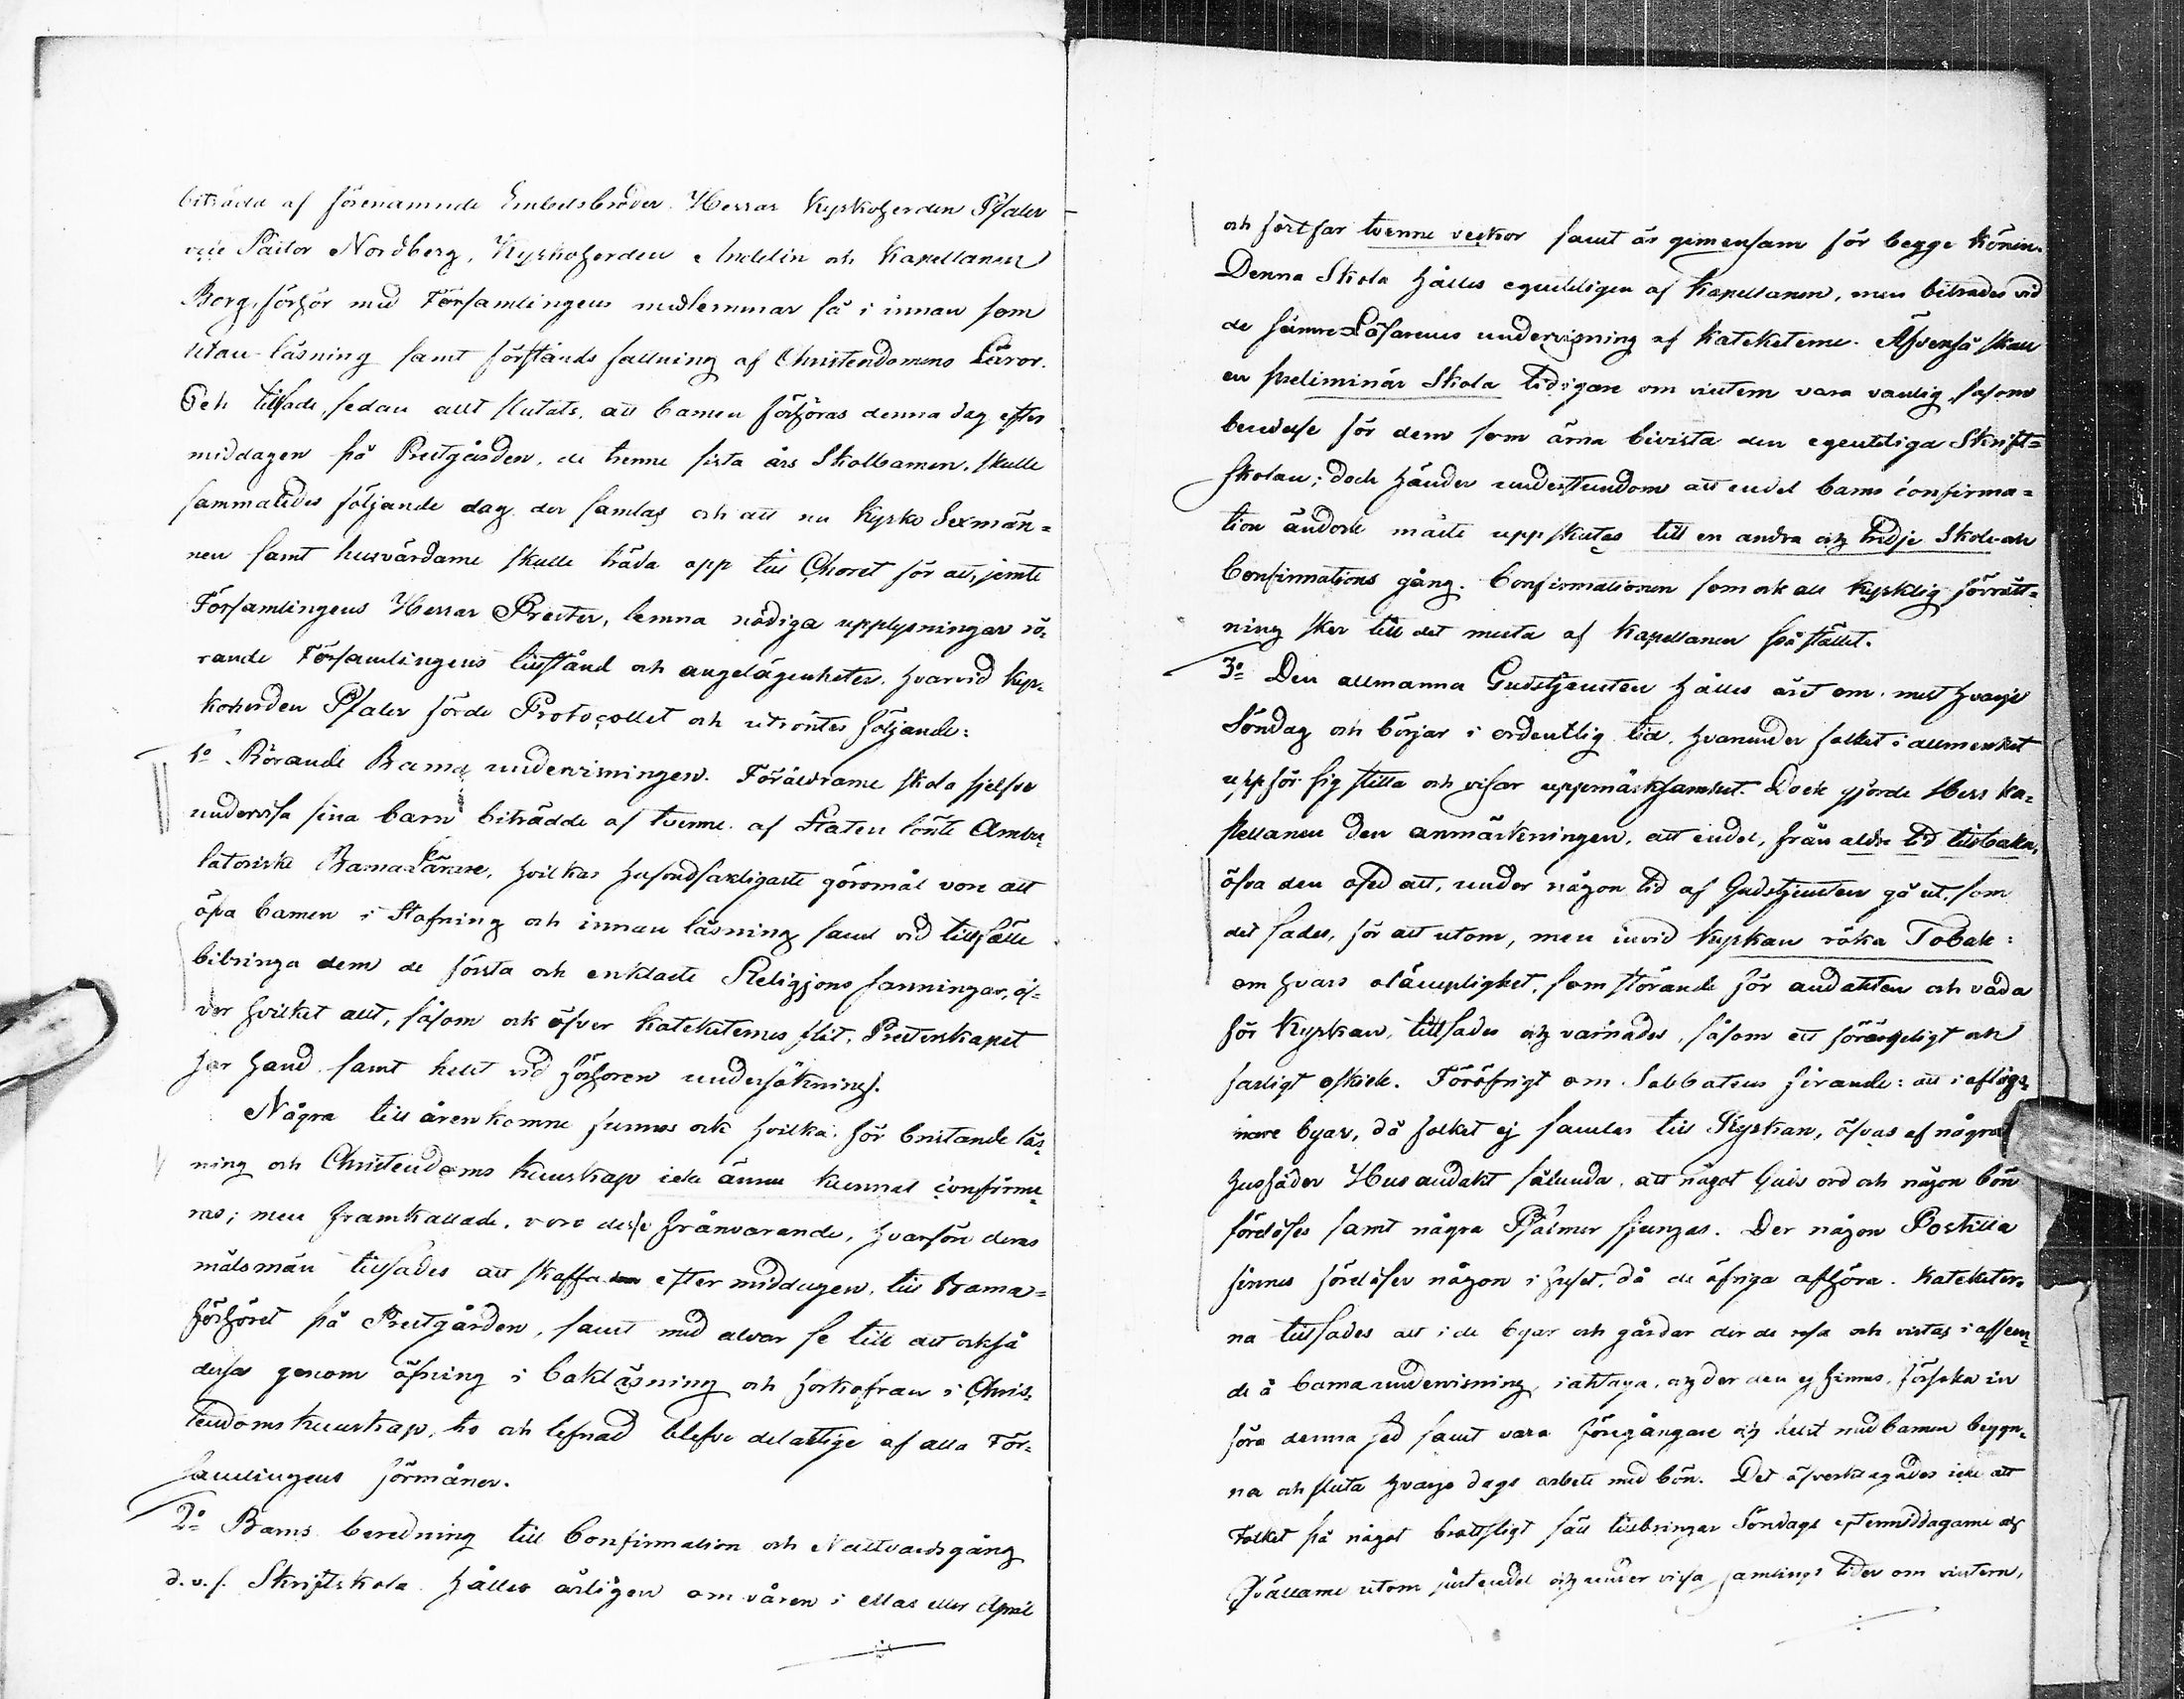 biträdd af förenämnde Embetsbröder Herrar Kyrkoherden Pfaler
vice Pastor Nordberg, Kyrkoherden Indelin och Kapellanen
Borg, förhör med Församlingens medlemmar så i innan som
utan-läsning samt förstånds fattning af Christendomens Läror.
Och tillsade, sedan allt slutats, att barnen förhöras denna dag efter
middagen på Prestgården, de trenne sista års Skolbarnen, skulle
sammaledes följande dag der samlas och att nu Kyrko Sexmän=
nen samt husvärdarne skulle träda opp till Choret för att, jemte
Församlingens Herrar Prester, lemna nödiga upplysningar rö=
rande Församlingens tillstånd och angelägenheter, hvarvid Kyr=
koherden Pfaler förde Protocollet och utröntes följande:
1:o Rörande Barna undervisningen. Föräldrarne skola sjelfve
undervisa sina barn biträdde af tvenne af Staten lönte Ambu=
latoriske Barnalärare, hvilkas hufvudsakligaste göromål vore att
öfva barnen i Stafning och innan läsning samt vid tillfälle
bibringa dem de första och enklaste Religions sanningar, öf=
ver hvilket allt, såsom ock öfver Kateketernes flit, Presterskapet
har hand samt helst vid förhören undersökning.
Några till åren komne funnos ock hvilka för bristande läs=
ning och Christendoms kunskap icke ännu kunnat confirme=
ras; men framkallade, voro desse frånvarande, hvarföre deras
målsmän tillsades att skaffa dem efter middagen, till Barna=
förhöret på Prestgården, samt med alvar se till att också
dessa genom öfning i bokläsning och förkofran i Chris=
tendoms kunskap, tro och lefnad blefve delaktige af alla För=
samlingens förmåner.
2:o Barns beredning till Confirmation och Nattvardsgång
d.v.s. Skriftskola hålles årligen om våren i Mars eller April
och fortfar tvenne veckor samt är gemensam för begge könen.
Denna Skola hålles egentligen af Kapellanen, men biträdes vid
de sämre Läsarenes undervisning af Kateketerne. Äfvenså skall
en preliminär Skola tidigare om vintern vara vanlig, såsom
beredelse för dem som ärna bivista den egentliga Skrift=
skolan; dock händer understundom att endel barns confirma=
tion ändock måste uppskutas till en andra och tredje Skole- och
Confirmations gång. Confirmationen som ock all kyrklig förrätt=
ning sker till det mesta af Kapellanen på stället.
3:o Den allmänna Gudstjensten hålles året om, mest hvarje
Söndag och börjar i ordentlig tid, hvarunder folket i allmenhet
uppför sig stilla och visar uppmärksamhet. Dock gjorde Herr Ka=
pellanen den anmärkningen, att endel, från äldre tid tillbaka,
öfva den osed att, under någon tid af Gudstjensten gå ut, som
det sades, för att utom, men invid Kyrkan röka Tobak:
om hvars olämplighet, som störande för andakten och våda
för Kyrkan, tillsades och varnades, såsom ett förargeligt och
farligt oskick. Föröfrigt om Sabbatens firande: att i aflägs=
nare byar, då folket ej samlas till Kyrkan, öfvas af några
husfäder Husandakt sålunda, att något Guds ord och någon bön
föreläses samt några Psalmer sjunges. Der någon Postilla
finnes föreläser någon i huset, då de öfriga afhöra. Kateketer=
na tillsades att i de byar och gårdar der de resa och vistas i afseen=
de å barnaundervisning iakttaga, och der den ej finnes, försöka in
föra denna sed samt vara föregångare och helst med barnen begyn=
na och sluta hvarje dags arbete med bön. Det öfverklagades icke att
Folket på något brottsligt sätt tillbringar Söndags eftermiddagarne och
Qvällarne utom just endel och under vissa samlings tider om vintern,